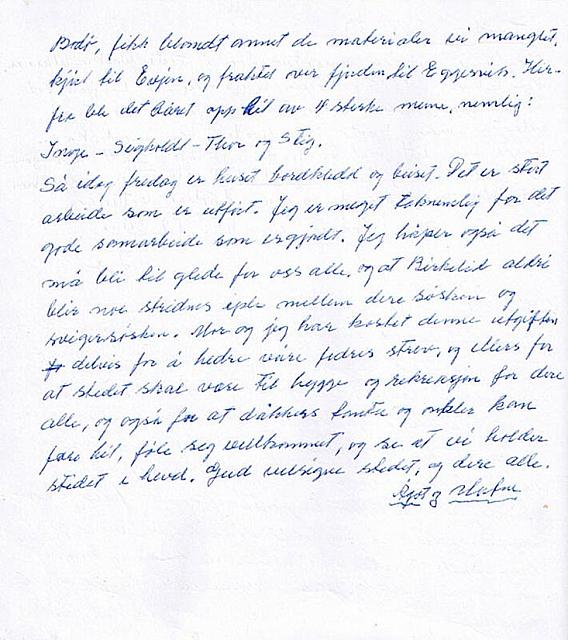 Bodø, fikk blandt annet de materialer vi manglet,
kjørt til Evjen, og fraktet over fjorden til Eggesvik. Her-
fra ble det båret opp hit av 4 sterke menn, nemlig:
Inge - Sigholdt - Thor og Stig.
Så idag fredag er huset bordkledd og beiset. Det er stort
arbeide som er utført. Jeg er meget taknemlig for det
gode samarbeide som er gjort. Jeg håper også det
må bli til glede for oss alle, og at Birkelid aldri
blir noe stridens eple mellem dere søsken og
svigersøsken. Mor og jeg har kostet denne utgiften
delvis for å hedre våre fedres strev, og ellers for
at stedet skal være til hygge og rekreasjon for dere
alle, og også for at dåkkers tanter og onkler kan
fare hit, føle seg velkommet, og se at vi holder
stedet i hevd. Gud velsigne stedet, og dere alle.
og